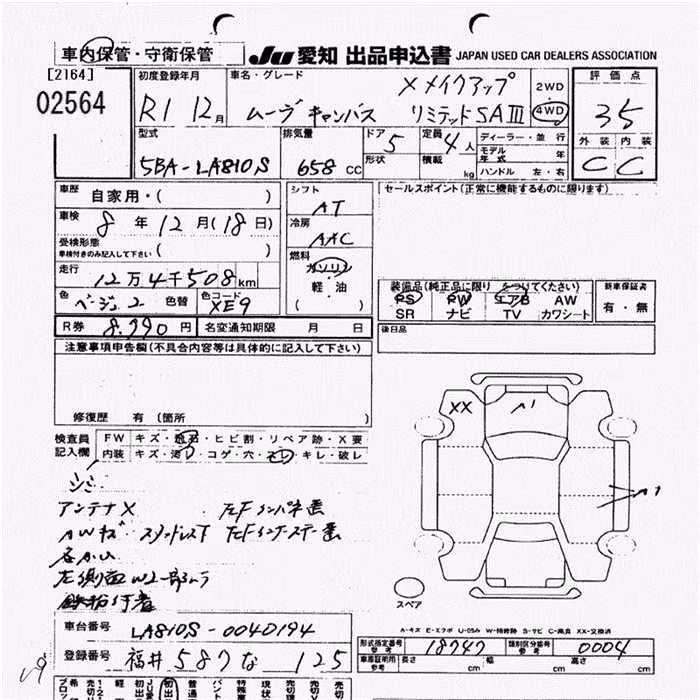 車内保管・守衛保管
JU 愛知 出品申込書 JAPAN USED CAR DEALERS ASSOCIATION
[2164]
02564
初度登録年月
R1 12月
車名・グレード
ムーヴ キャンバス
メイクアップ
リミテッド SAⅢ
2WD
4WD
評価点
35
外装 内装
C C
型式
5BA-LA810S
排気量
658 CC
ドア 5
形状
定員 4人
積載 kg
ディーラー・並行
モデル年式 年
ハンドル 左・右
車歴 自家用・( )
車検 8年 12月(18日)
受検形態
車検付きのみ記入して下さい ( )
走行 12万4千508km
色 ベージュ2 色替 色コード XE9
シフト
AT
冷房
AAC
燃料
ガソリン
軽・油
( )
R券 8,990円 名変通知期限 月 日
セールスポイント(正常に機能するものに限ります)
装備品(純正品に限り○をつけてください)
PS PW エアB AW
SR ナビ TV カワシート
新車保証書
有・無
後日品
注意事項申告欄(不具合内容等は具体的に記入して下さい)
修復歴 有(箇所 )
検査員記入欄
FW キズ・飛石・ヒビ割・リペア跡・X要
内装 キズ・汚れ・コゲ・穴・スレ・キレ・破レ
シミ
アンテナX
AWキズ スタッドレスT
左Fインパネ歪
左側面W2一部ムラ
XX
A1
A1
スペア
A-キズ E-エクボ U-凹み W-補修跡 S-サビ C-腐食 XX-交換済
車台番号 LA810S-0040194
登録番号 福井 587 な 125
形式指定番号
参考
18747
類別区分番号
参考
0004
車庫証明用参考 長さ cm 幅 cm 高さ cm